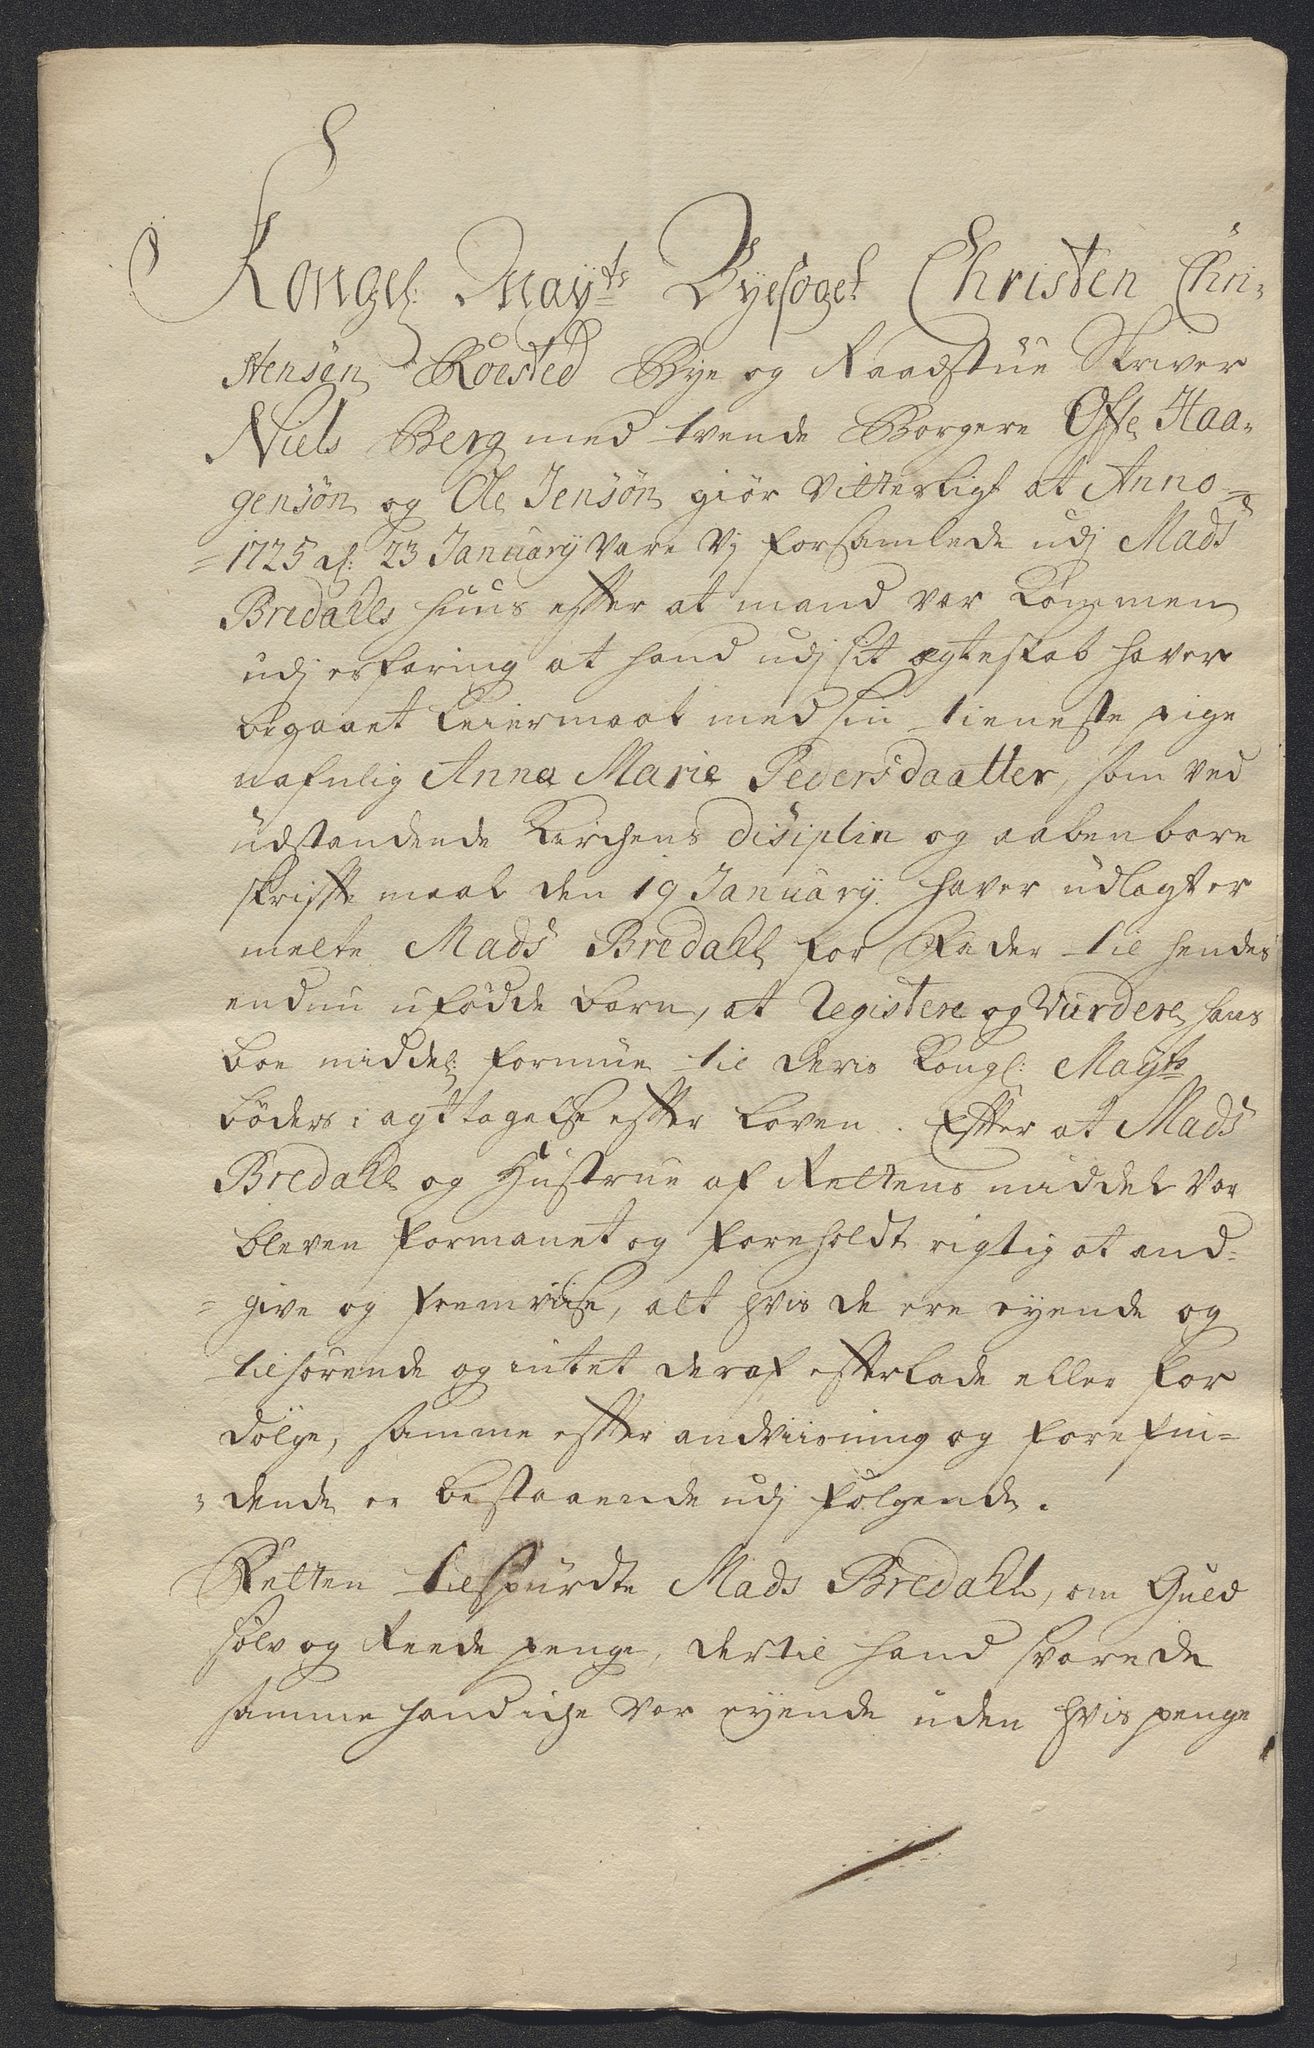 Kongel: May:ts Byefoget Christen Chri-
stensøn Roested Bye og Raadstue Skriver
Niels Berg med tvende Borgere Offe Haa-
gensøn og Ole Jensøn giør vitterligt at Anno =
= 1725 d: 23 January vare vj forsamlede udj Mads
Bredahls huus efter at mand var kommen
udj erfaring at hand udj sit ægteskab haver
begaaet Leiermaal med sin tieneste pige
nafnlig Anna Marie Pedersdaatter, som ved
udstandende Kirchens disiplin og aabenbare
skriftemaal den 19 January haver udlagt er
melte Mads Bredahl for Fader til hendes
endnu ufødde barn, at Registere og Vurdere hans
boe middel: formue til deris Kongl: Mayts
bøders i agttagelse efter Loven. Efter at Mads
Bredahl og Hustrue af Rettens middel var
bleven formanet og foreholdt rigtig at and-
= give og fremviise, alt hvis de ere eyende og
tilhørende og intet deraf efterlade eller for
dølge, samme efter andviisning og forefin=
= dende er bestaaende udj følgende.
Retten tilspurdte Mads Bredahl, om Guld
sølv og Reede penge, dertil hand svarede
samme hand iche var eyende uden hvis penge